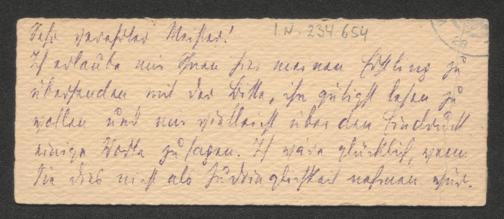 Sehr verehrter Meister! I.N. 234 654
Ich erlaube mir Ihnen hier meinen Erstling zu
übersenden mit der Bitte, ihn gütigst lesen zu
wollen und mir vielleicht über den Eindruck
einige Worte zu sagen. Ich wäre glücklich, wenn
Sie dies nicht als Zudringlichkeit nehmen würd.